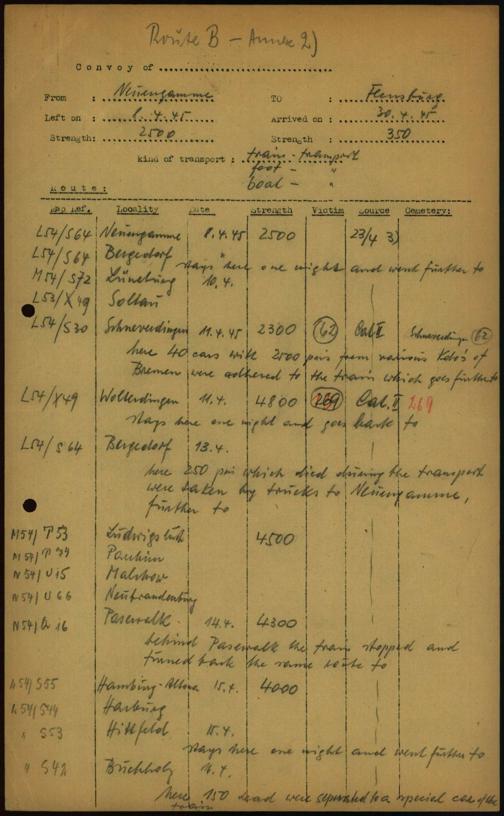 Route B - Annex 2)
Convoy of ..............................
From : Neuengamme TO : Flensburg
Left on : 8.4.45 Arrived on : 30.4.45
Strength: 2500 Strength : 350
kind of transport : train-transport
foot - "
boat - "
Route:
Map Ref. Locality Date Strength Victim Source Cemetery:
L54/S64 Neuengamme 8.4.45 2500 23/4 3)
L54/S64 Bergedorf
stays here one night and went further to
M54/S72 Lüneburg 10.4.
L53/X49 Soltau
L54/S30 Schneverdingen 11.4.45 2300 62 Cal.II Schneverdingen 62
here 40 cars with 2500 pris from various Kdos of
Bremen were adhered to the train which goes further to
L54/X49 Wolterdingen 11.4. 4800 269 Cal.II 269
stays here one night and goes back to
L54/S64 Bergedorf 13.4.
here 250 pri which died during the transport
were taken by trucks to Neuengamme,
further to
M54/T53 Ludwigslust 4500
M54/ Parchim
N54/U15 Malchow
N54/U66 Neubrandenburg
N54/ 16 Pasewalk 14.4. 4300
behind Pasewalk the train stopped and
turned back the same route to
L54/S55 Hamburg-Altona 15.4. 4000
L54/S44 Harburg
" S53 Hittfeld 15.4.
stays here one night and went further to
" S42 Buchholz
here 150 dead were separated to a special car of the
train